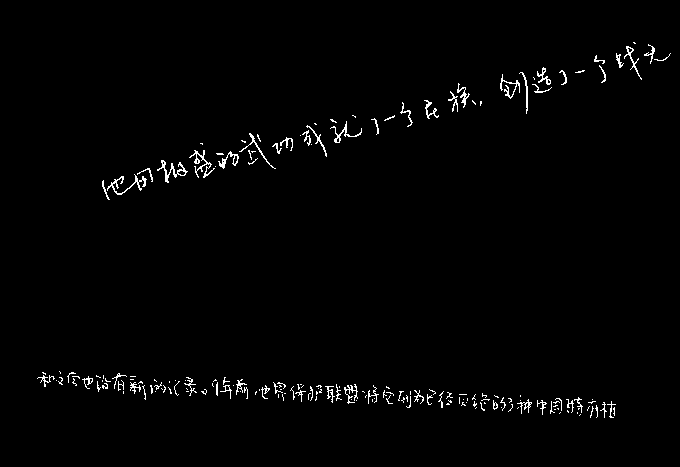 他用极盛的武功成就了一个民族，创造了一个战无
和之后也没有新的记录。9年前，世界保护联盟将它列为已经灭绝的3种中国特有植